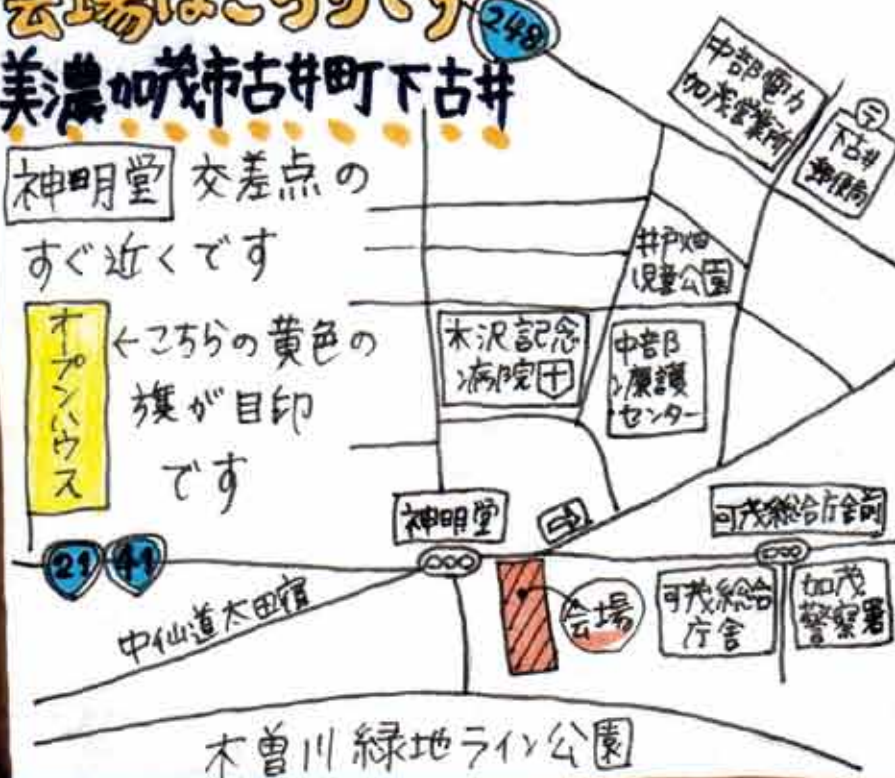 会場はこちらです
美濃加茂市古井町下古井
神明堂 交差点の
すぐ近くです
オープンハウス
←こちらの黄色の
旗が目印
です
248
中部電力
加茂営業所
〒
下古井
郵便局
井戸畑
児童公園
木沢記念
病院
中部
療護
センター
神明堂
可茂総合庁舎前
21 41
中仙道太田宿
会場
可茂総合
庁舎
加茂
警察署
木曽川緑地ライン公園